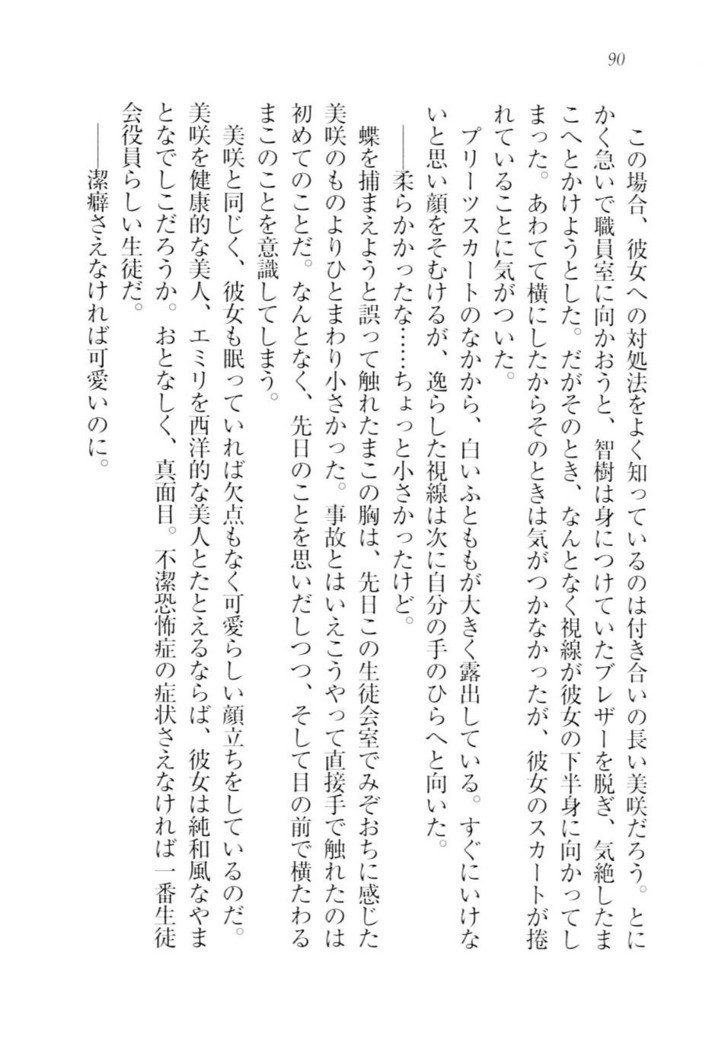 90
この場合、彼女への対処法をよく知っているのは付き合いの長い美咲だろう。とに
かく急いで職員室に向かおうと、智樹は身につけていたブレザーを脱ぎ、気絶したま
こへとかけようとした。だがそのとき、なんとなく視線が彼女の下半身に向かってし
まった。あわてて横にしたからそのときは気がつかなかったが、彼女のスカートが捲
れていることに気がついた。
プリーツスカートのなかから、白いふとももが大きく露出している。すぐにいけな
いと思い顔をそむけるが、逸らした視線は次に自分の手のひらへと向いた。
――柔らかかったな……ちょっと小さかったけど。
蝶を捕まえようと誤って触れたまこの胸は、先日この生徒会室でみぞおちに感じた
美咲のものよりひとまわり小さかった。事故とはいえこうやって直接手で触れたのは
初めてのことだ。なんとなく、先日のことを思いだしつつ、そして目の前で横たわる
まこのことを意識してしまう。
美咲と同じく、彼女も眠っていれば欠点もなく可愛らしい顔立ちをしているのだ。
美咲を健康的な美人、エミリを西洋的な美人とたとえるならば、彼女は純和風なやま
となでしこだろうか。おとなしく、真面目。不潔恐怖症の症状さえなければ一番生徒
会役員らしい生徒だ。
――潔癖さえなければ可愛いのに。